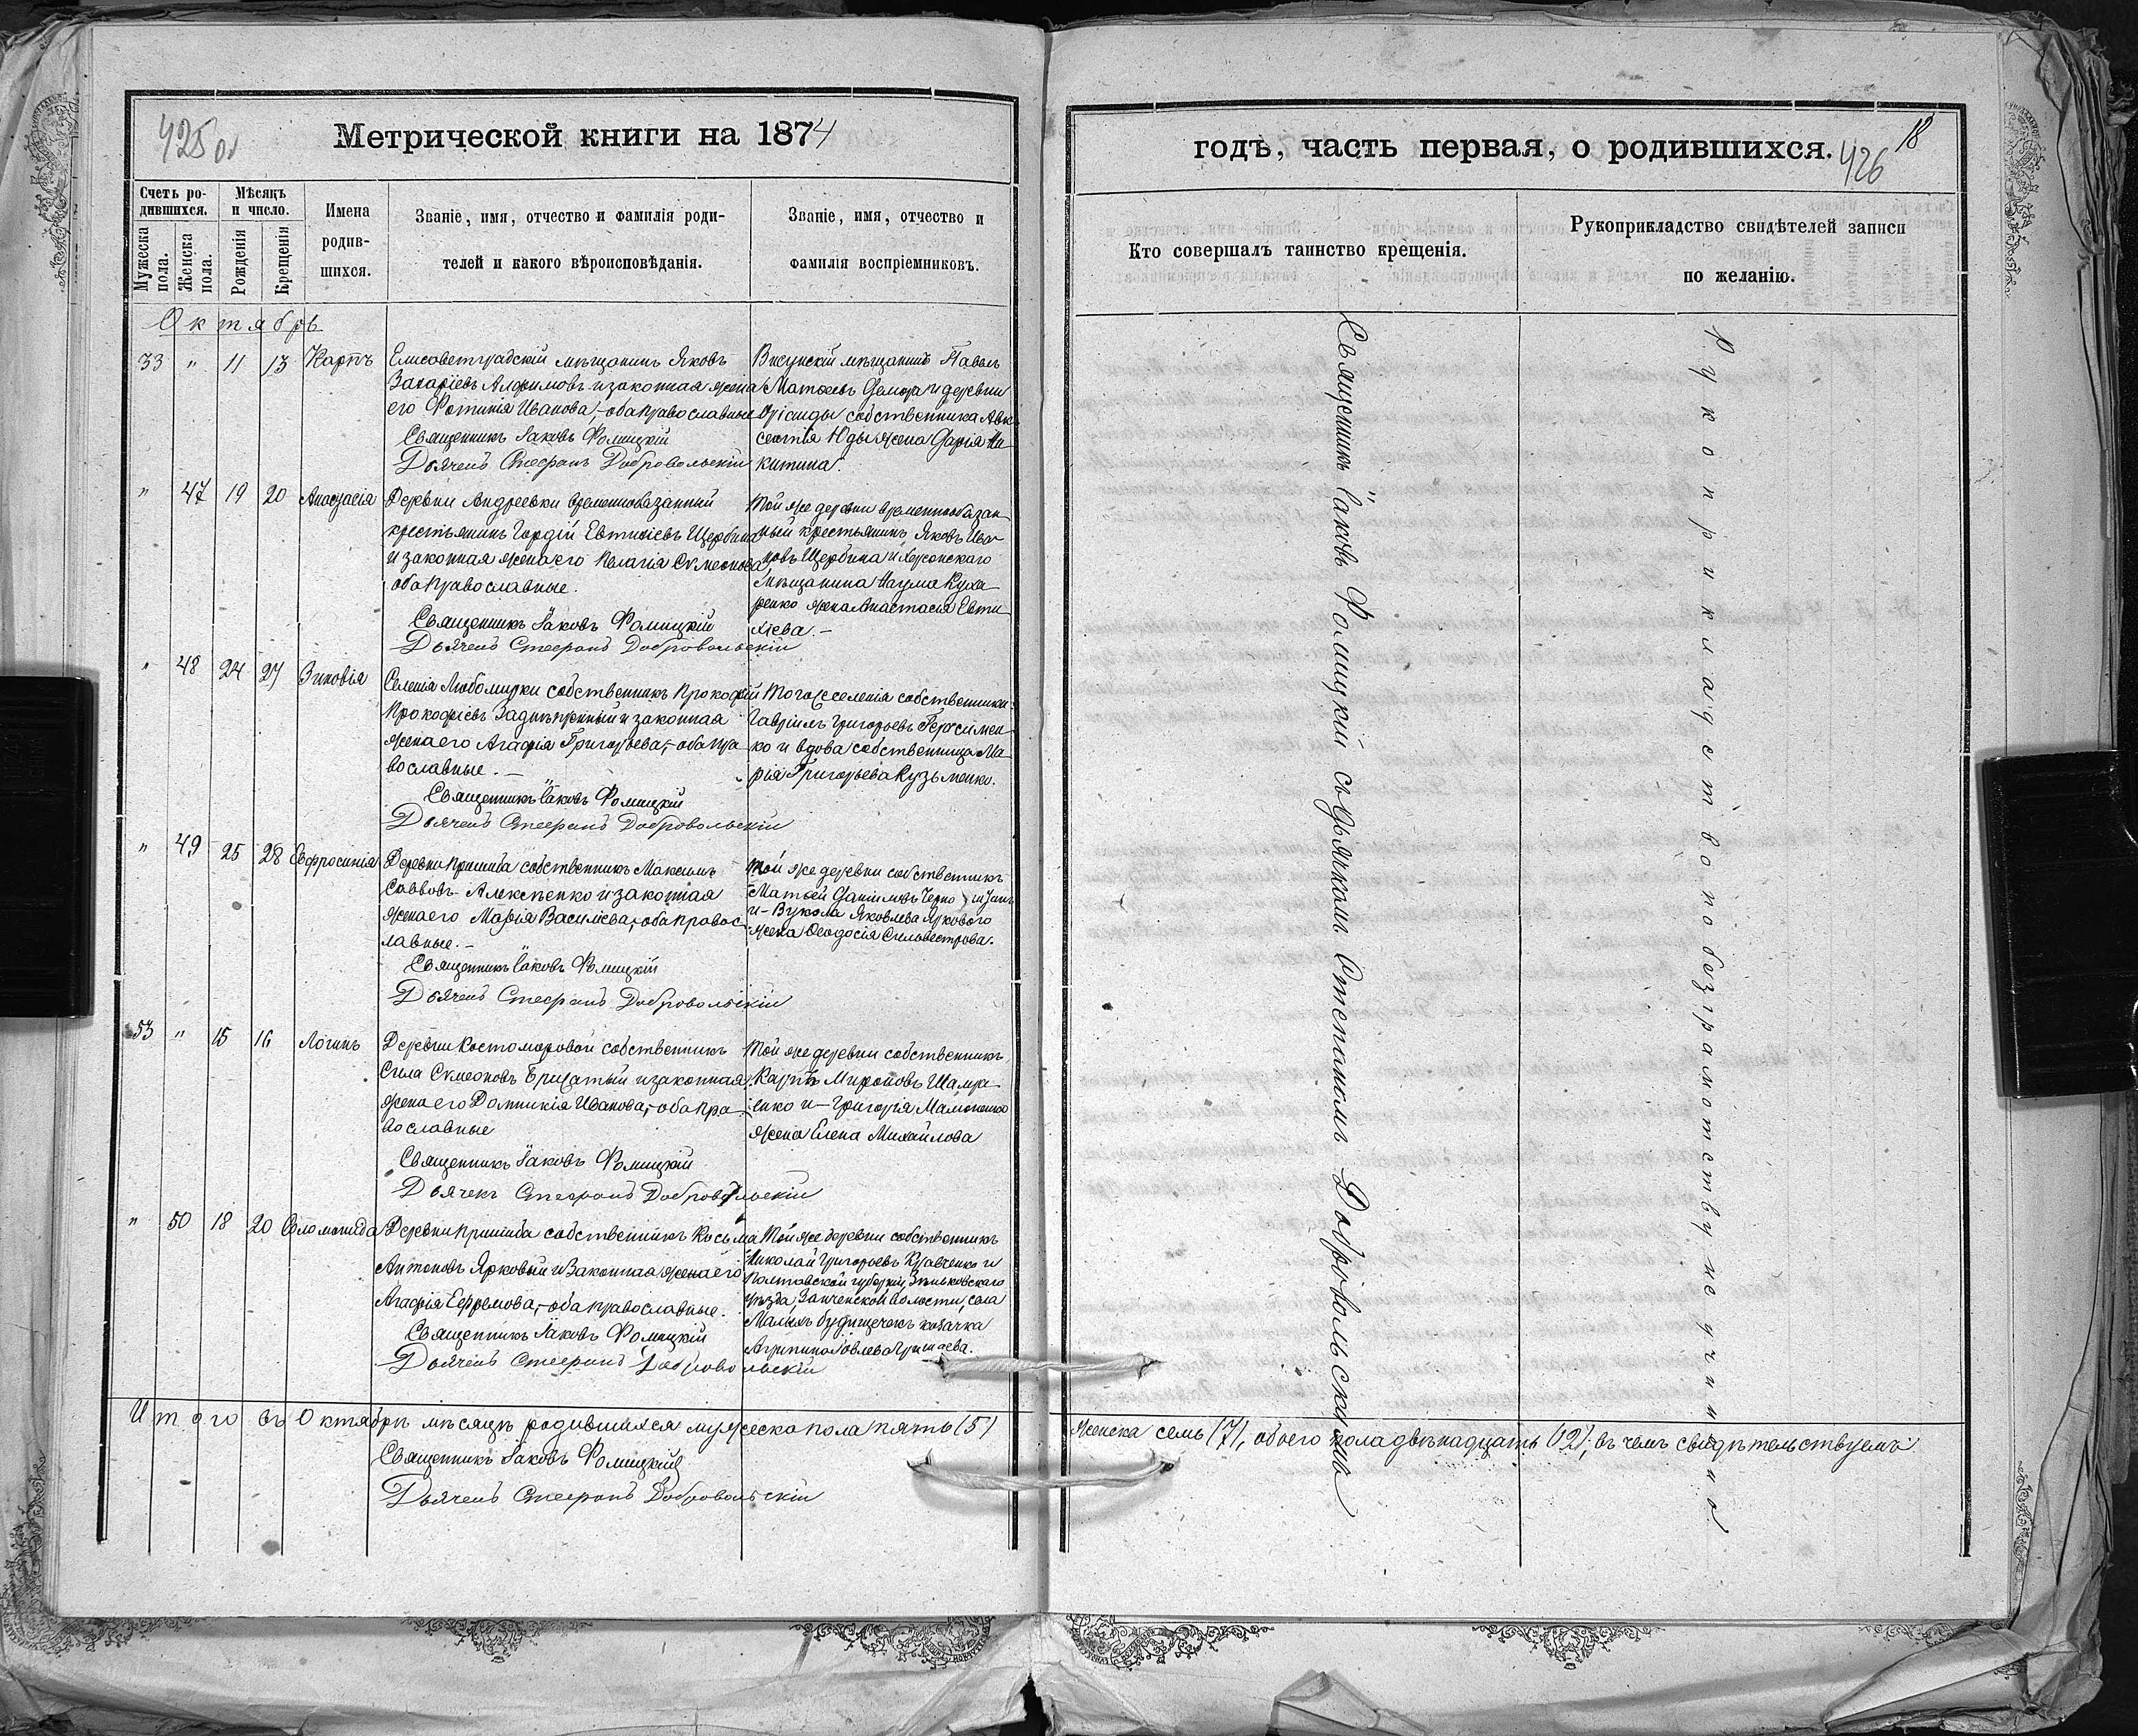 425 об
Метрической книги на 1874
Счетъ ро-
дившихся.
Мѣсяцъ
и число.
Мужеска
пола.
Женска
пола.
Рожденія
Крещенія
Имена
родив-
шихся.
Званіе, имя, отчество и фамилія роди-
телей и какого вѣроисповѣданія.
Званіе, имя, отчество и
фамилія воспріемниковъ.
Октябрь
33 " 11 13 Карпъ
Елисаветградскій мѣщанинъ Яковъ
Захаріевъ Алфимовъ и законная жена
его Фотинія Иванова, - оба православные
Священникъ Іаковъ Фомицкій
Дьячекъ Стефанъ Добровольскій
мѣщанинъ Павелъ
Матѳеевъ и деревни
собственника Авк-
сентія Юды жена Дарія Ни-
китина.
" 47 19 20 Анастасія
Деревни Андреевки временнообязанный
крестьянинъ Гордій Евтихіевъ Щербина
и законная жена его Пелагія Симеонова,
оба православные.
Священникъ Іаковъ Фомицкій
Дьячекъ Стефанъ Добровольскій
Той же деревни временнообязан-
ный крестьянинъ Яковъ Ива-
новъ Щербина и Херсонскаго
мѣщанина Наума Куха-
ренко жена Анастасія Евти-
хіева. -
" 48 24 27 Зиновія
Селенія Любомирки собственникъ Прокофій
Прокофіевъ Заднѣпряный и законная
жена его Агафія Григорьева, - оба пра-
вославные. -
Священникъ Іаковъ Фомицкій
Дьячекъ Стефанъ Добровольскій
Того же селенія собственники:
Гавріилъ Григорьевъ Герасимен-
ко и вдова собственница Ма-
рія Григорьева Кузьменко.
" 49 25 28 Евфросинія
Деревни Пришиба собственникъ Максимъ
Саввовъ Алексѣенко и законная
жена его Марія Василіева, - оба правос-
лавные. -
Священникъ Іаковъ Фомицкій
Дьячекъ Стефанъ Добровольскій
Той же деревни собственникъ
Матѳей Даніиловъ
и - Вукола Яковлева Яркового
жена Ѳеодосія Сильвестрова.
53 " 15 16 Логинъ
Деревни Костомаровой собственникъ
Сила Симеоновъ и законная
жена его Домникія Иванова, - оба пра-
вославные
Священникъ Іаковъ Фомицкій
Дьячекъ Стефанъ Добровольскій
Той же деревни собственникъ
Карпъ Мироновъ Шамра-
енко и - Григорія
жена Елена Михайлова
" 50 18 20 Соломонида
Деревни Пришиба собственникъ Косьма
Антоновъ Ярковый и законная жена его
Агафія Ефремова, - оба православные.
Священникъ Іаковъ Фомицкій
Дьячекъ Стефанъ Добровольскій
Той же деревни собственникъ
Николай Григорьевъ Кравченко и
Полтавской губерніи, Зѣньковскаго
уѣзда, волости, села
Малыхъ Будищечекъ козачка
Итого въ Октябрѣ мѣсяцѣ родившихся мужеска пола пять (5)
Священникъ Іаковъ Фомицкій
Дьячекъ Стефанъ Добровольскій
годъ, часть первая, о родившихся.
18
426
Кто совершалъ таинство крещенія.
Рукоприкладство свидѣтелей записи
по желанію.
Священникъ Іаковъ Фомицкій съ дьячкомъ Стефаномъ Добровольскимъ
Рукоприкладство по безграмотству не учинено
женска семь (7), обоего пола двѣнадцать (12); въ чемъ свидѣтельствуемъ: